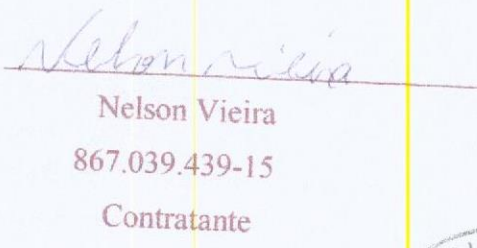 Nelson Vieira
Nelson Vieira
867.039.439-15
Contratante